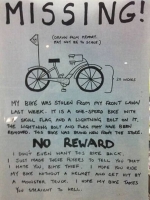 MISSING!
(DRAWN FROM MEMORY.
MAY NOT BE TO SCALE)
MY BIKE WAS STOLEN FROM MY FRONT LAWN
LAST WEEK. IT IS A ONE-SPEED BIKE WITH
A SKULL FLAG AND A LIGHTNING BOLT ON IT.
THE LIGHTNING BOLT AND FLAG MAY HAVE BEEN
REMOVED. THIS BIKE WAS BRAND NEW FROM THE STORE.
NO REWARD
I DON'T EVEN WANT THIS BIKE BACK.
I JUST MADE THESE FLYERS TO TELL YOU THAT
I HATE YOU, BIKE THIEF. I HOPE YOU RIDE
MY BIKE WITHOUT A HELMET AND GET HIT BY
A MONSTER TRUCK. I HOPE MY BIKE TAKES
YOU STRAIGHT TO HELL.